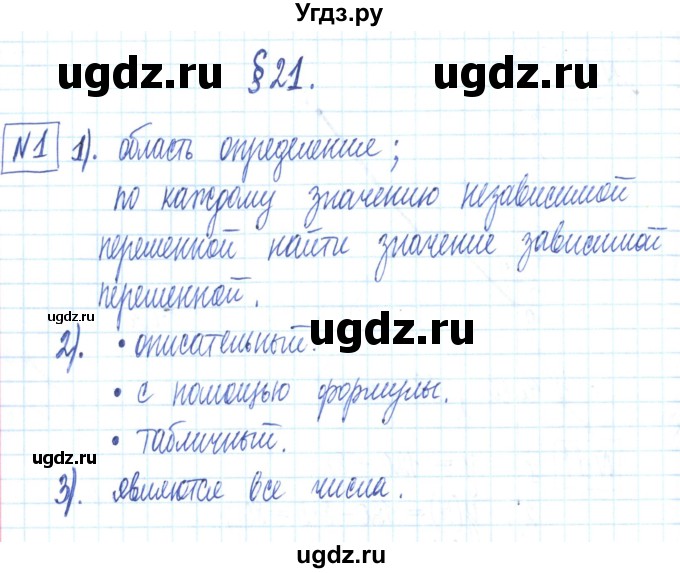 Угдз.ру
ugdz.ru §21. ugdz.ru
№1 1). область определение;
по каждому значению независимой
переменной найти значение зависимой
переменной.
ugdz.ru
2). • описательный. ugdz.ru
• с помощью формулы.
• табличный.
ugdz.ru
3). являются все числа.
ugdz.ru
ugdz.ru